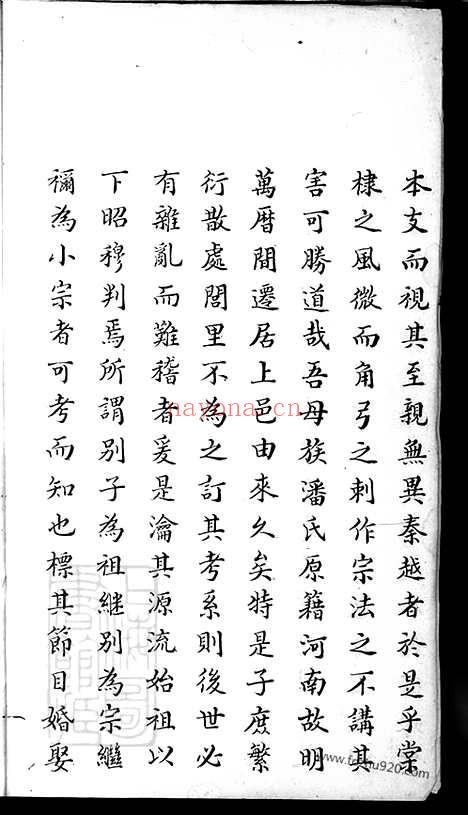 本支而視其至親無異秦越者於是乎棠
棣之風微而角弓之刺作宗法之不講其
害可勝道哉吾母族潘氏原籍河南故明
萬曆間遷居上邑由來久矣特是子庶繁
衍散處閭里不為之訂其考系則後世必
有雜亂而難稽者爰是瀹其源流始祖以
下昭穆判焉所謂别子為祖繼别為宗繼
禰為小宗者可考而知也標其節目婚娶
nayona.cn